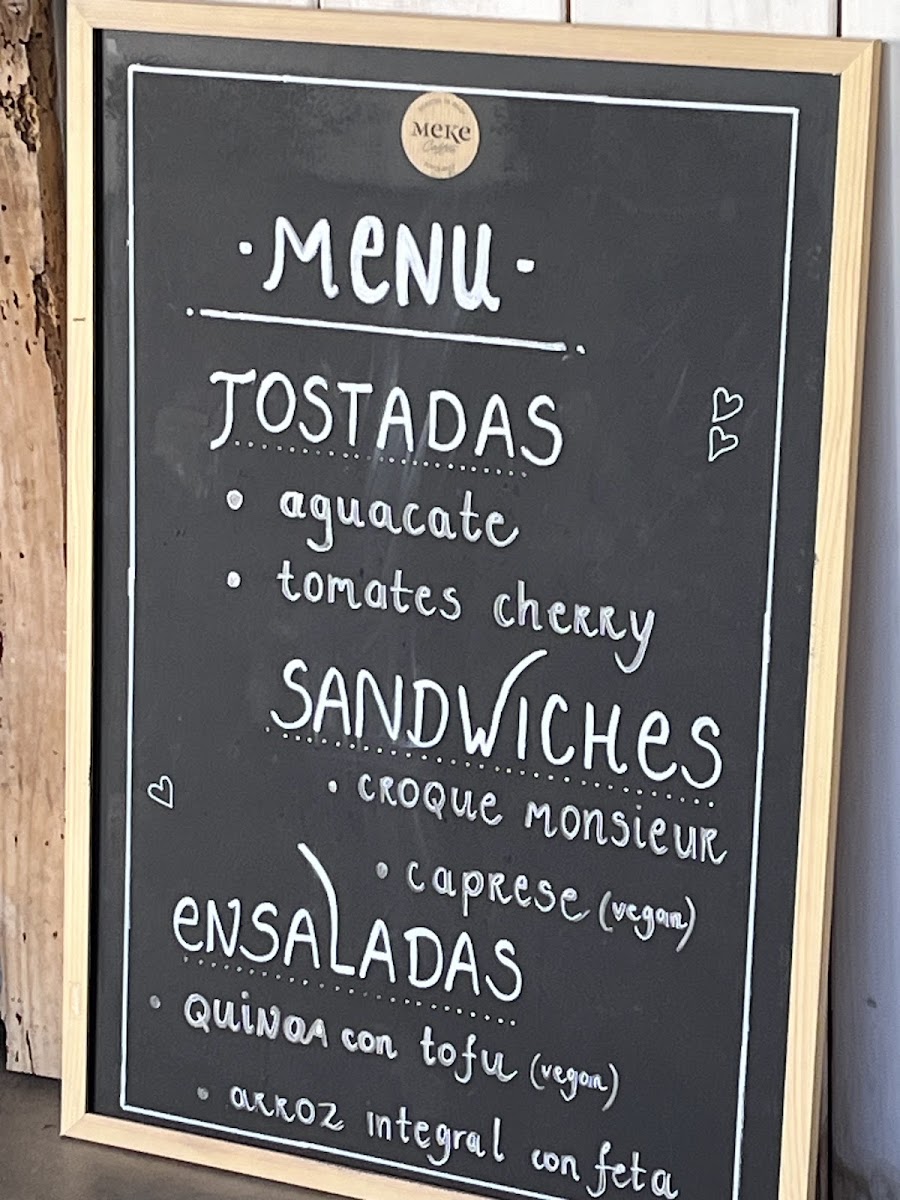 MeKe
Coffee
·MeNU·
TOSTADAS
• aguacate
• tomates cherry
SANDWICHeS
• CROQue monsieur
• caprese (vegan)
eNSALADAS
• QuiNOA con tofu (vegan)
• arroz integral con feta